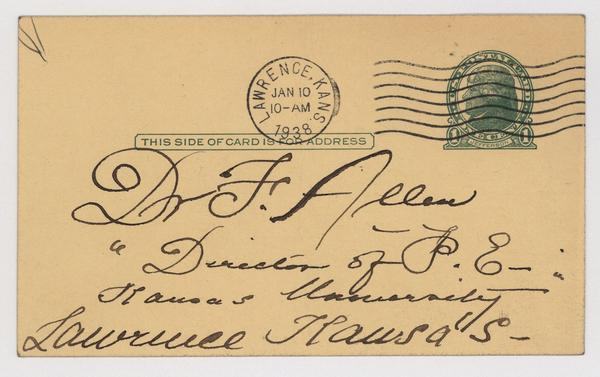 LAWRENCE, KANS.
JAN 10
10-AM
1938
1 JEFFERSON 1
THIS SIDE OF CARD IS FOR ADDRESS
Dr F. Allen
"Director of P. E-"
Kansas University
Lawrence Kansas-